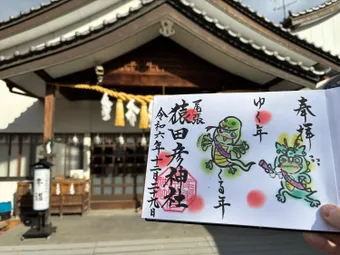 奉拝
ゆく年
くる年
尾張
猿田彦神社
令和六年十二月二十九日